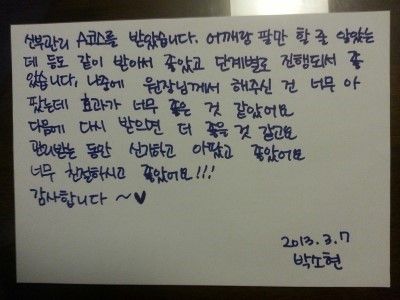 신부관리 A코스를 받았습니다. 어깨랑 팔만 할 줄 알았는
데 등도 같이 받아서 좋았고 단계별로 진행되서 좋
았습니다. 나중에 원장님께서 해주신 건 너무 아
팠는데 효과가 너무 좋은 것 같았어요
다음에 다시 받으면 더 좋을 것 같고요
관리받는 동안 신기하고 아팠고 좋았어요
너무 친절하시고 좋았어요!!!
감사합니다 ~♥
2013. 3. 7
박소현